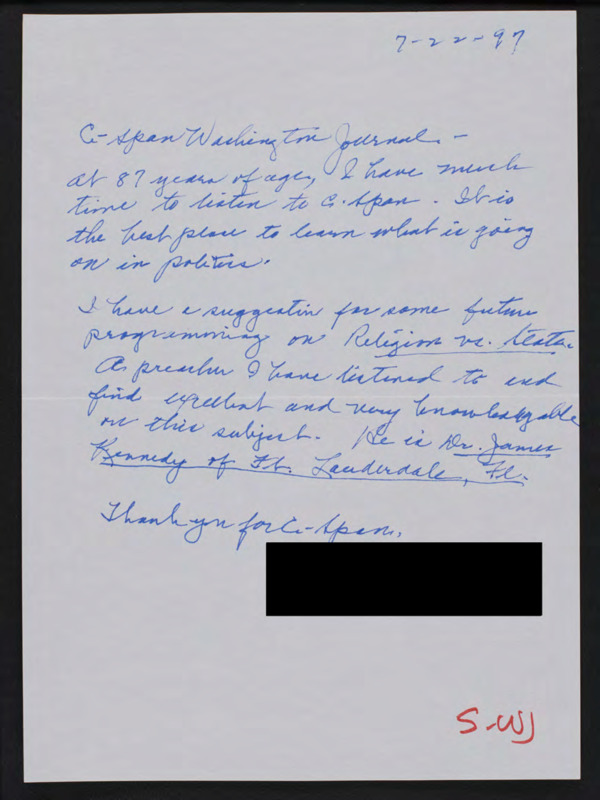 7-22-97
C-Span Washington Journal -
At 87 years of age, I have much
time to listen to C-Span. It is
the best place to learn what is going
on in politics.
I have a suggestion for some future
programming on Religion vs. State.
A preacher I have listened to and
find excellent and very knowledgable
on this subject. He is Dr. James
Kennedy of Ft. Lauderdale, Fl.
Thank you for C-Span.
S-WJ